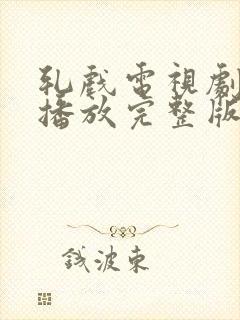 乳戲電視劇
播放完整版
錢波東